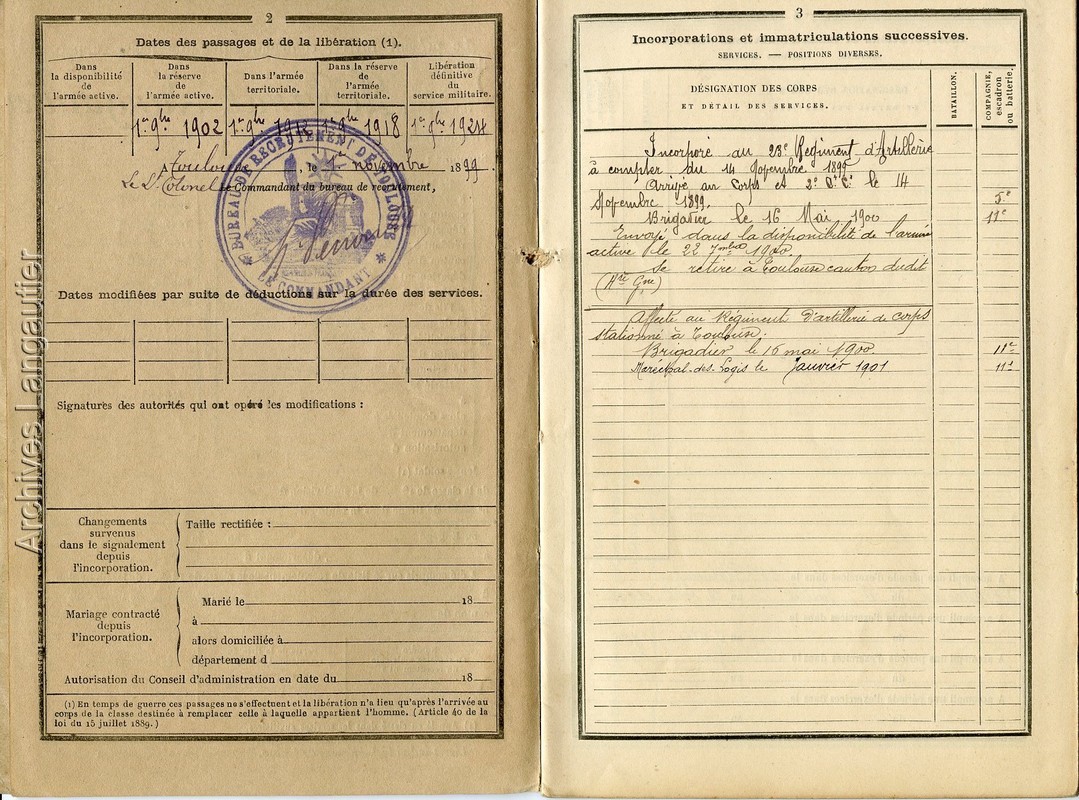 2
Dates des passages et de la libération (1).
Dans
la disponibilité
de
l'armée active.
Dans
la réserve
de
l'armée active.
Dans l'armée
territoriale.
Dans la réserve
de
l'armée
territoriale.
Libération
définitive
du
service militaire.
1er 9bre 1902 1er 9bre 1912 1er 9bre 1918 1er 9bre 1924
Toulouse, le 1er novembre 1899.
Le Lt Colonel Le Commandant du bureau de recrutement,
BUREAU DE RECRUTEMENT DE TOULOUSE
LE COMMANDANT
Dates modifiées par suite de déductions sur la durée des services.
Signatures des autorités qui ont opéré les modifications :
Changements
survenus
dans le signalement
depuis
l'incorporation.
Taille rectifiée :
Mariage contracté
depuis
l'incorporation.
Marié le 18
à
alors domiciliée à
département d
Autorisation du Conseil d'administration en date du 18
(1) En temps de guerre ces passages ne s'effectuent et la libération n'a lieu qu'après l'arrivée au
corps de la classe destinée à remplacer celle à laquelle appartient l'homme. (Article 40 de la
loi du 15 juillet 1889.)
Archives Langautier
3
Incorporations et immatriculations successives.
SERVICES. — POSITIONS DIVERSES.
DÉSIGNATION DES CORPS
ET DÉTAIL DES SERVICES.
BATAILLON.
COMPAGNIE,
escadron
ou batterie.
Incorporé au 23e Régiment d'Artillerie
à compter du 14 Novembre 1899
Arrivé au Corps et 2e C. C. le 14
Novembre 1899. 5e
Brigadier le 16 Mai 1900 11e
Envoyé dans la disponibilité de l'armée
active le 22 7mbre 1900.
Se retire à Toulouse canton dudit
(Hte Gne)
Affecté au Régiment d'artillerie de corps
stationné à Toulouse.
Brigadier le 16 mai 1900. 11e
Maréchal-des-Logis le janvier 1901 11e